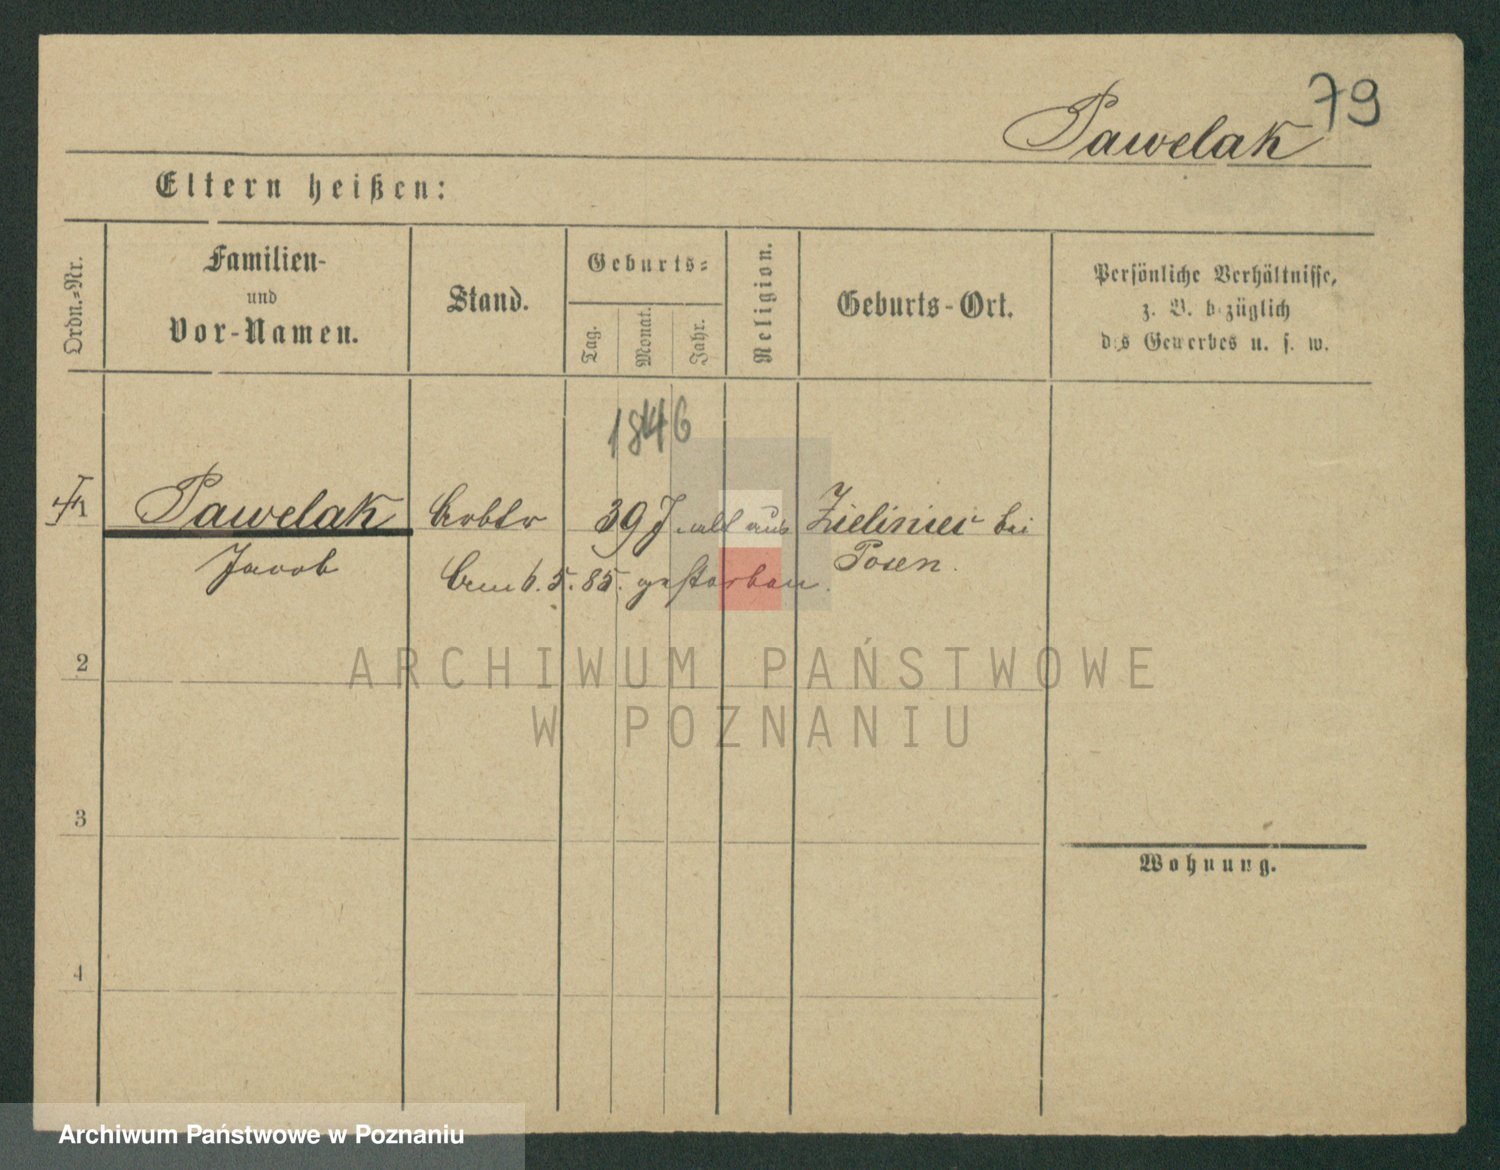 79
Pawelak
Eltern heißen:
Ordn.-Nr.
Familien-
und
Vor-Namen.
Stand.
Geburts-
Tag.
Monat.
Jahr.
Religion.
Geburts-Ort.
Persönliche Verhältnisse,
z. B. bezüglich
des Gewerbes u. s. w.
1846
1 Pawelak Arbtr 39 J. alt aus Zieliniec bei
Jacob Am 6.5.85. gestorben. Posen.
2
3
4
Wohnung.
ARCHIWUM PAŃSTWOWE
W POZNANIU
Archiwum Państwowe w Poznaniu